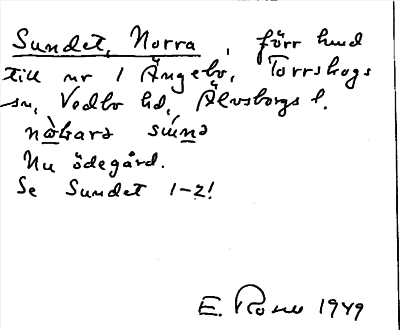 Sundet, Norra, förr hmd
till nr 1 Ängebo, Torrskogs
sn, Vedbo hd, Älvsborgs l.
Nu ödegård.
Se Sundet 1-2!
E. Rosell 1949